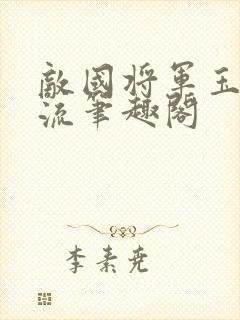 敵國將軍玉
流筆趣閣
李素尧